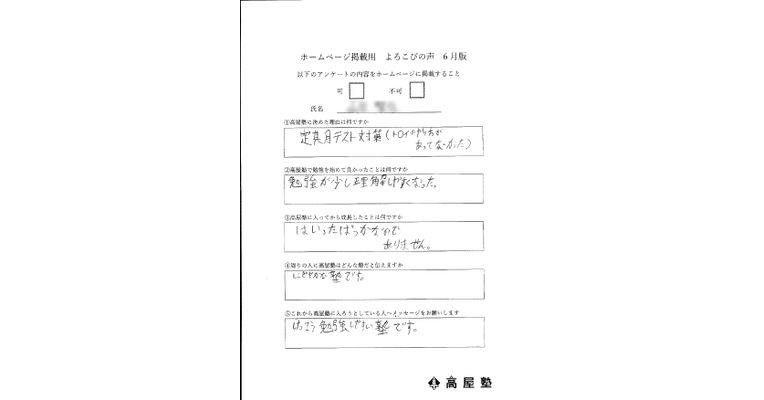 ホームページ掲載用 よろこびの声 6月版
以下のアンケートの内容をホームページに掲載すること
可 不可
氏名
①高屋塾に決めた理由は何ですか
定期テスト対策(トロイのやり方が
あってなかった)
②高屋塾で勉強を始めて良かったことは何ですか
勉強が少し理解しやすくなった。
③高屋塾に入ってから成長したことは何ですか
はいったばっかなので
ありません。
④周りの人に高屋塾はどんな塾だと伝えますか
にぎやかな塾です。
⑤これから高屋塾に入ろうとしている人へメッセージをお願いします
けっこう勉強しやすい塾です。
高屋塾